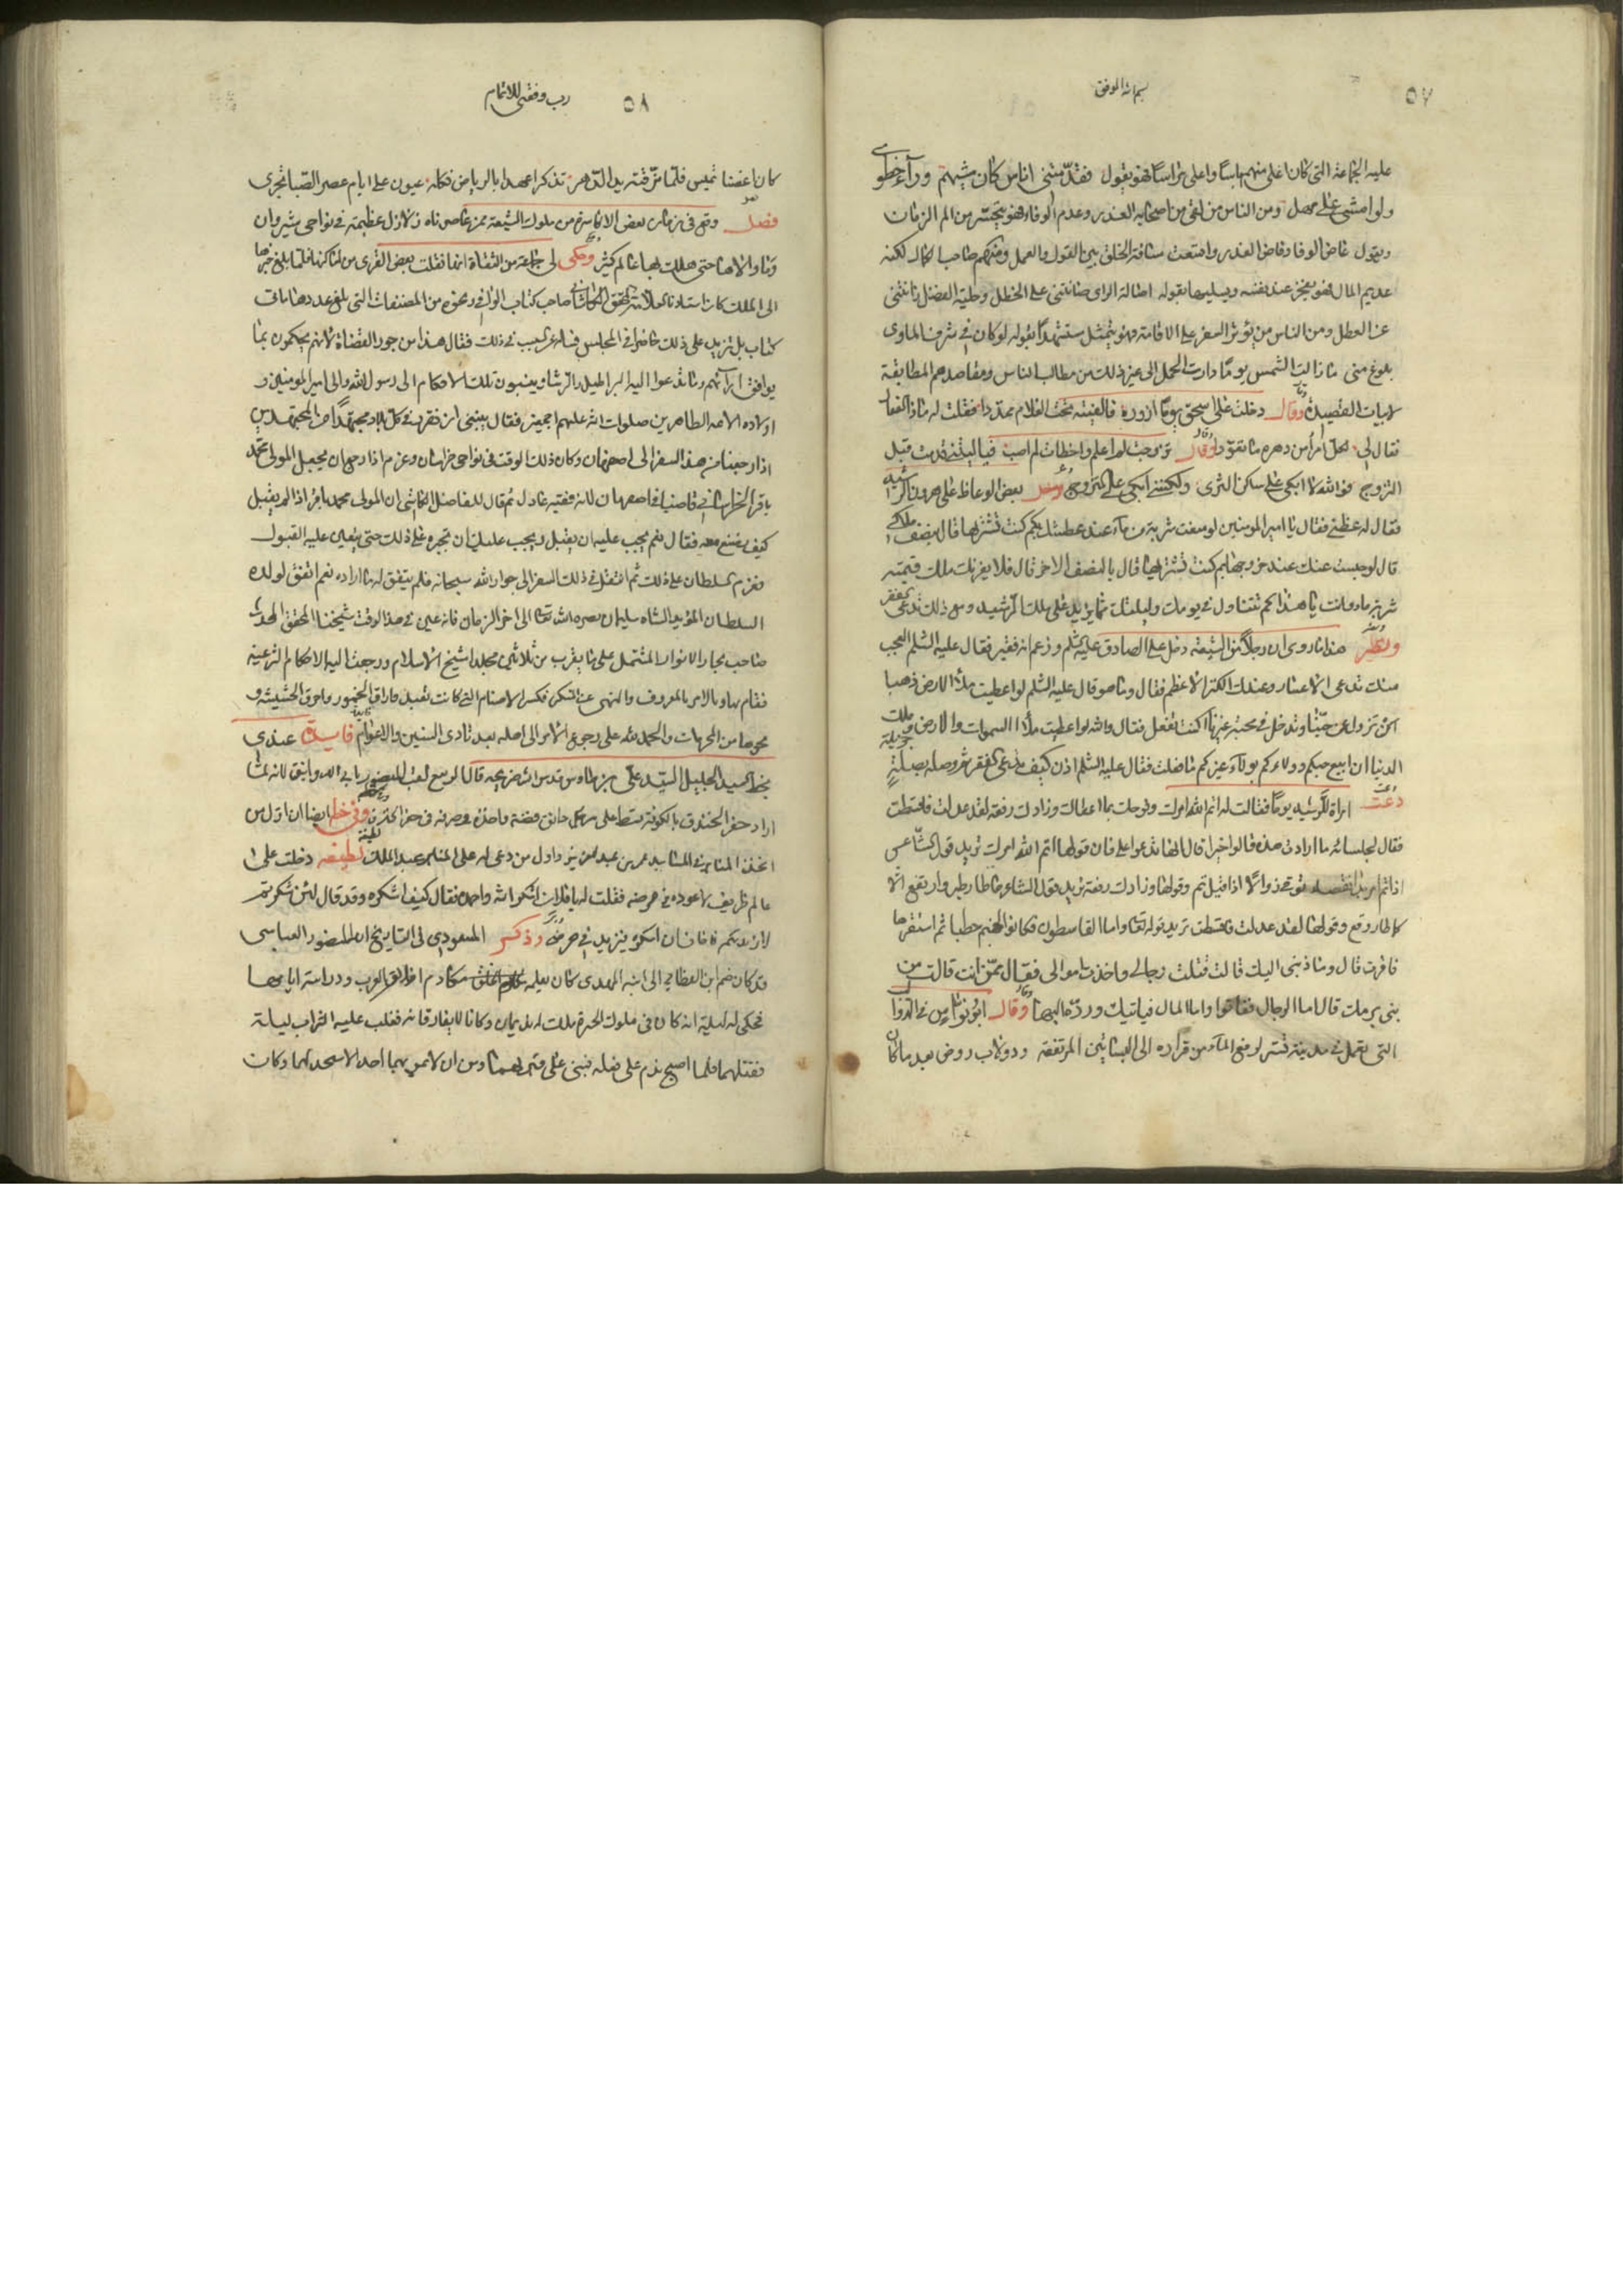 ٥٧
بسم الله الموفق
عليه الجماعة التي كان اعلى منهم باسا واعلى مراسا فهو يقول فقد متنى اناس كان مشيهم ورآء خطوى
ولو امشى على مهل ومن الناس من لقى من اصحابه الغدر وعدم الوفاء فهو يتحسر من الم الزمان
ويقول غاض الوفا وفاض الغدر واتسعت مسافة الخلق بين القول والعمل ومنهم صاحب الكمال لكنه
عديم المال فهو يفخر عند نفسه ويسليها بقوله اصالة الراى صانتنى على الخطل وحلية الفضل زانتنى
عن العطل ومن الناس من يؤثر السفر على الاقامة فهو يتمثل مستشهدا بقوله لو كان في شرف الماوى
بلوغ منى ما زالت الشمس يوما دارت الحمل الى غير ذلك من مطالب الناس ومقاصدهم المطابقة
لابيات القصيدة وقال دخلت على اسحق يوما ازوره فالفيته تحت الغلام ممددا فقلت له ماذا الفعال
فقال لي لكل امرأ من دهره ما تعودا وقال تزوجت لم اعلم واخطات لم اصب فيا ليتنى قد مت قبل
التزوج فوالله لا ابكى على ساكن الثرى ولكننى ابكى على المتزوج ودخل بعض الوعاظ على هرون الرشيد
فقال له عظنى فقال يا امير المومنين لو منعت شربة من مآء عند عطشك بكم كنت تشتريها قال بنصف ملكى
قال لو حبست عنك عند خروجها بكم كنت تشتريها قال بالنصف الاخر قال فلا يغرنك ملك قيمته
شربة ماء وانت يا هذا كم تتناول في يومك وليلتك مما يزيد على ملك الرشيد ومع ذلك تدعى الفقر
ونظير هذا ما روى ان رجلا من الشيعة دخل على الصادق عليه السلم وزعم انه فقير فقال عليه السلم العجب
منك تدعى الاعسار وعندك الكنز الاعظم فقال وما هو قال عليه السلم لو اعطيت ملأ الارض ذهبا
اكن تزول عن حبنا وتدخل في محبة غيرنا اكنت تفعل فقال والله لو اعطيت ملأ السموات والارض وملك
الدنيا ان ابيع حبكم وولاءكم بولآء غيركم ما فعلت فقال عليه السلم اذن كيف تدعى الفقر ثم وصله بصلة جزيلة
دعت امراة للرشيد يوما فقالت له اتم الله امرك وفرحك بما اعطاك وزادك رفعة لقد عدلت فاقسطت
فقال لجلسائه ما ارادت هذه قالوا خيرا قال انها تدعوا على فان قولها اتم الله امرك تريد قول الشاعر
اذا تم امر بدا نقصه توقع زوالا اذا قيل تم وقولها وزادك رفعة تريد قول الشاعر ما طار طير وارتفع الا
كما طار وقع وقولها لقد عدلت فاقسطت تريد قوله تعا واما القاسطون فكانوا لجهنم حطبا ثم استقرها
فاقرت قال وما ذنبى اليك قالت قتلت رجالي واخذت اموالى فقال ممن انت قالت من
بنى برمك قال اما الرجال فقد فاتوا واما المال فياتيك وردها اليها وقال ابو نواس في الدولاب
التى تعمل في مدينة تستر لرفع المآء من قراره الى البساتين المرتفعة ودولاب روض بعد ما كان
٥٨
رب وفقنى للاتمام
كان اغصنا تميس فلما مزقته يد الدهر تذكر اعهدا بالرياض فكله عيون على ايام عصر الصبا تجرى
فصل وقع في زمان بعض الاكاسرة من ملوك الشيعة ممن عاصرناه زلازل عظيمة في نواحي شيروان
وما والاها حتى هلك بها عالم كثير وحكى لى جماعة من الثقاة انها نقلت بعض القرى من اماكنها فلما بلغ خبرها
الى الملك كان استادنا العلامة المحقق الكاشانى صاحب كتاب الوافي وغيره من المصنفات التى بلغ عددها مائتى
كتاب بل تزيد على ذلك حاضرا في المجلس فساله عن السبب في ذلك فقال هذا من جور القضاة لانهم يحكمون بما
يوافق ارآئهم وما تدعوا اليه البراطيل والرشا وينسبون تلك الاحكام الى رسول الله والى امير المومنين و
اولاده الائمه الطاهرين صلوات الله عليهم اجمعين فقال ينبغى ان نقرر في كل بلد مجتهدا من المجتهدين
اذا رجعنا من هذا السفر الى اصفهان وكان ذلك الوقت فى نواحى خراسان وعزم اذا رجع ان يجعل المولى محمد
باقر الخراسانى قاضيا في اصفهان لانه فقيه عادل ثم قال للفاضل الكاشى ان المولى محمد باقر اذا لم يقبل
كيف نصنع معه فقال نعم يجب عليه ان يقبل ويجب عليك ان تجبره على ذلك حتى يتعين عليه القبول
فعزم السلطان على ذلك ثم انتقل في ذلك السفر الى جوار الله سبحانه فلم يتفق له ما اراده نعم اتفق لولده
السلطان المؤيد الشاه سليمان نصره الله تعالى الى اخر الزمان فانه عين في هذا الوقت شيخنا المحقق المحدث
صاحب بحار الانوار المشتمل على ما يقرب من ثلاثين مجلدا شيخ الاسلام ورجعت اليه الاحكام الشرعية
فقام بها وبالامر بالمعروف والنهى عن المنكر فكسر الاصنام التى كانت تعبد واراق الخمور واحرق الحشيشة و
نحوها من المحرمات والحمد لله على رجوع الامر الى اصله بعد تمادى السنين والاعوام فايدة عندي
بخط السيد الجليل السيد على بن طاوس قدس الله ضريحه قال الربيع لقب المنصور بابى الدوانيق لانه لما
اراد حفر الخندق بالكوفة قسط على كل دانق فضة واخذه وصرفه في حفر الخندق وفى خطه ايضا ان اول من
اتخذ المنابر في المساجد عمر بن عبد العزيز واول من دعى له على المنابر عبد الملك لطيفة دخلت على
عالم ظريف لاعوده في مرضه فقلت له يا فلان اشكر الله واحمده فقال كيف اشكره وقد قال لئن شكرتم
لازيدنكم فاخاف ان اشكره فيزيد في مرضى وذكر المسعودى فى التاريخ ان المنصور العباسى
قد كان ضم ابن القطامى الى ابنه المهدى كان يعلمه مكارم اخلاق العرب ودراسة ايامها
فحكى له ليلة انه كان فى ملوك الحيرة ملك له نديمان وكانا لا يفارقانه فغلب عليه الشراب ليلة
فقتلهما فلما اصبح ندم على فعله فبنى على قبريهما وسن ان لا يمر بهما احد الا سجد لهما وكان